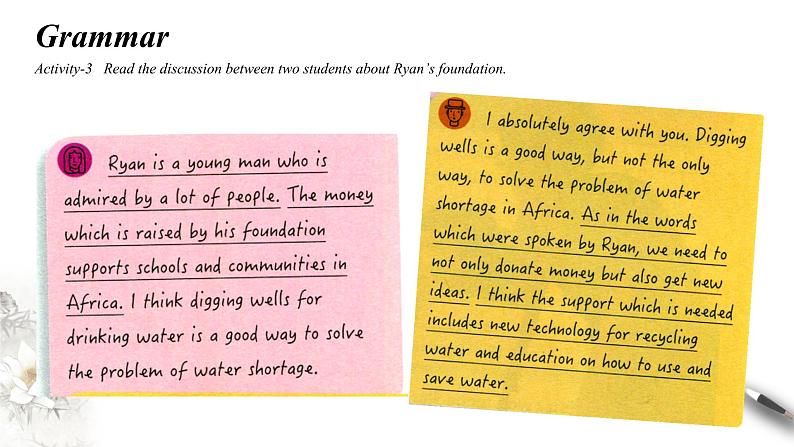 Grammar
Activity-3 Read the discussion between two students about Ryan's foundation.
Ryan is a young man who is
admired by a lot of people. The money
which is raised by his foundation
supports schools and communities in
Africa. I think digging wells for
drinking water is a good way to solve
the problem of water shortage.
I absolutely agree with you. Digging
wells is a good way, but not the only
way, to solve the problem of water
shortage in Africa. As in the words
which were spoken by Ryan, we need to
not only donate money but also get new
ideas. I think the support which is needed
includes new technology for recycling
water and education on how to use and
save water.